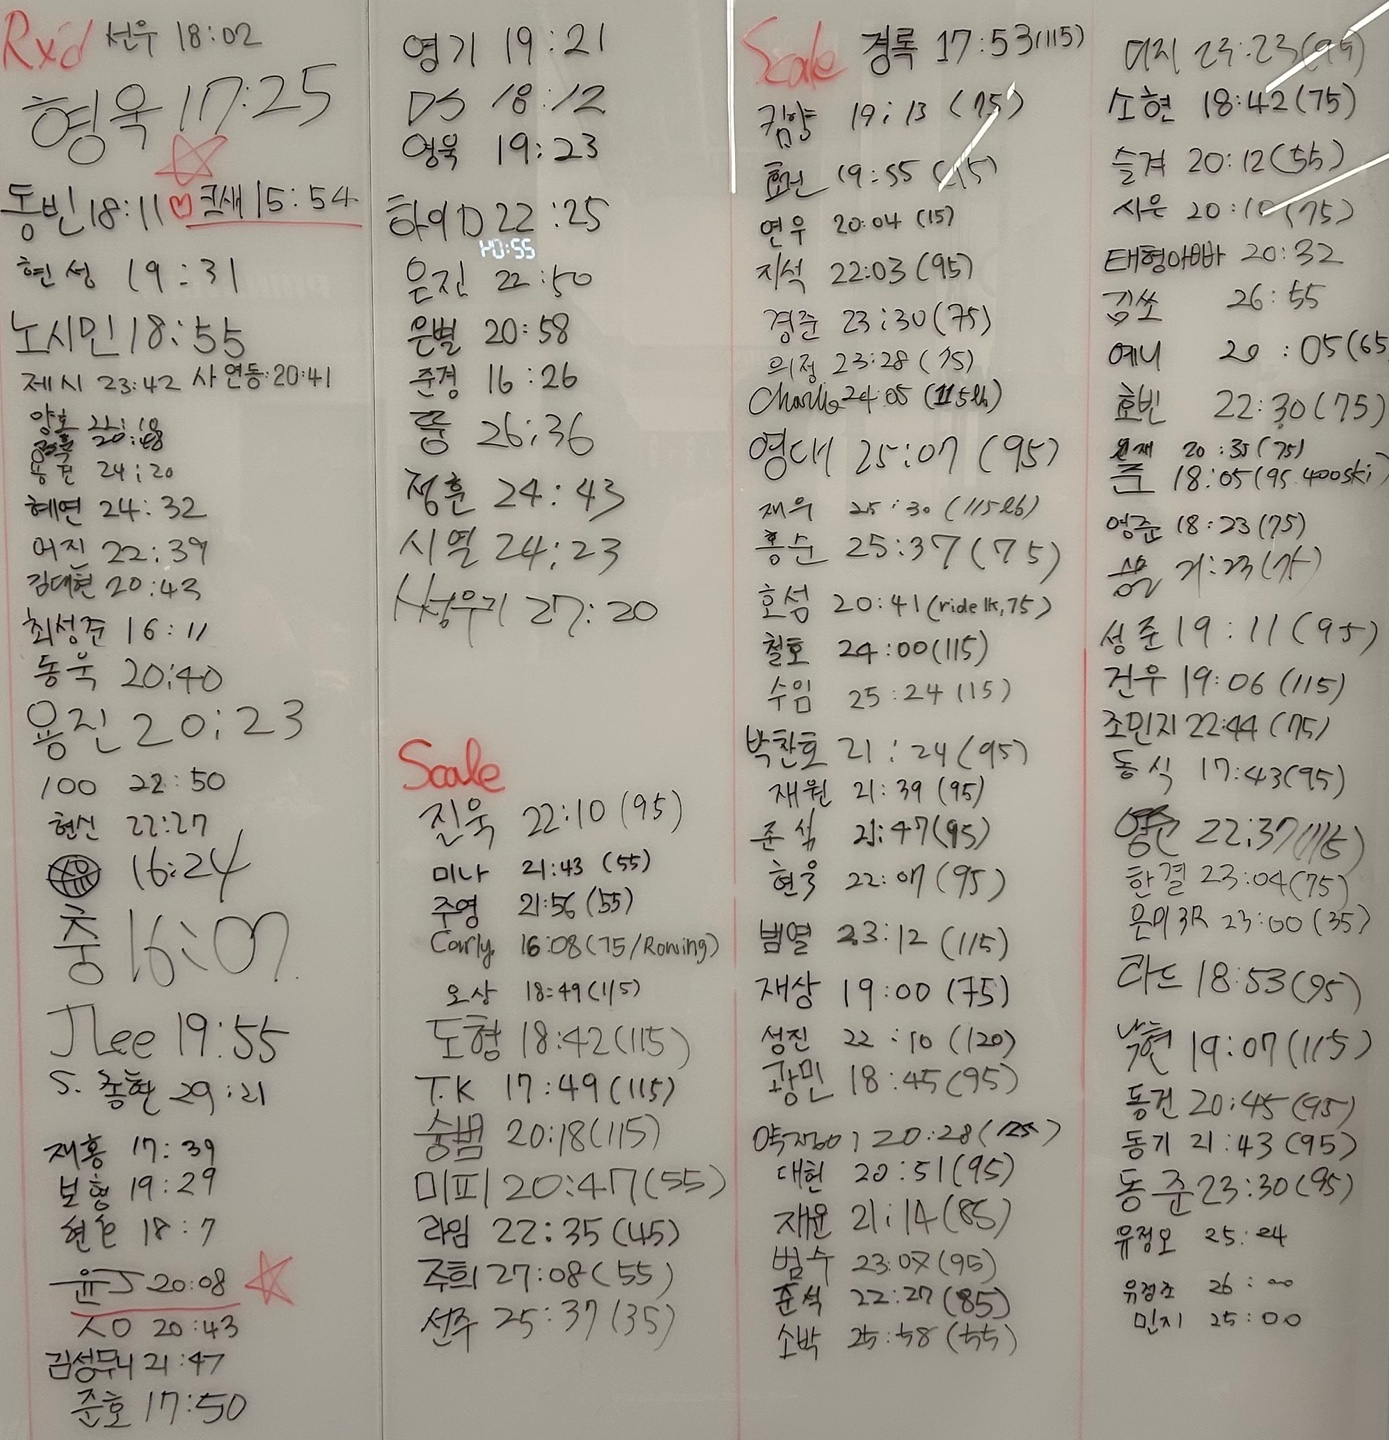 Rx'd 선우 18:02
형욱 17:25
동빈 18:11 ♡ 크새 15:54
현성 19:31
노시민 18:55
제시 23:42 사연동 20:41
양호 22:18
20:48
24:20
혜연 24:32
어진 22:39
김대현 20:43
최성준 16:11
동욱 20:40
용진 20:23
100 22:50
현신 22:27
16:24
충 16:07
JLee 19:55
S. 종환 29:21
재홍 17:39
보형 19:29
18:7
윤J 20:08
ㅅㅇ 20:43
김성무니 21:47
준호 17:50
영기 19:21
DS 18:12
영욱 19:23
하이D 22:25
은진 22:50
은별 20:58
준경 16:26
쭝 26:36
정훈 24:43
시열 24:23
27:20
Scale
진욱 22:10 (95)
미나 21:43 (55)
주영 21:56 (55)
Carly 16:08 (75/Rowing)
오상 18:49 (115)
도형 18:42 (115)
T.K 17:49 (115)
숭범 20:18 (115)
미피 20:47 (55)
라임 22:35 (45)
주희 27:08 (55)
선주 25:37 (35)
Scale 경록 17:53 (115)
킴향 19:13 (75)
효헌 19:55
연우 20:04 (75)
지석 22:03 (95)
경준 23:30 (75)
의정 23:28 (75)
Charlie 24:05 (115lb)
영대 25:07 (95)
재우 25:30 (115lb)
홍순 25:37 (75)
호섬 20:41 (ride 1k, 75)
철호 24:00 (115)
수임 25:24 (75)
박찬호 21:24 (95)
재원 21:39 (95)
준식 21:47 (95)
현욱 22:07 (95)
범열 23:12 (115)
재상 19:00 (75)
성진 22:10 (120)
광민 18:45 (95)
20:28 (125)
대현 20:51 (95)
재윤 21:14 (85)
범수 23:07 (95)
준석 22:27 (85)
소박 25:58 (55)
더지 23:23 (95)
소현 18:42 (75)
슬겨 20:12 (55)
시은 20:10 (75)
태형아빠 20:32
김쏘 26:55
예니 20:05 (65
효빈 22:30 (75)
20:35 (75)
준 18:05 (95 400ski)
영준 18:23 (75)
21:23 (75)
성준 19:11 (95)
건우 19:06 (115)
조민지 22:44 (75)
동식 17:43 (95)
22:37 (115)
한결 23:04 (75)
은미 3R 23:00 (35)
라드 18:53 (95)
박현 19:07 (115)
동건 20:45 (95)
동기 21:43 (95)
동준 23:30 (95)
유정오 25:24
유정조 26:00
민지 25:00